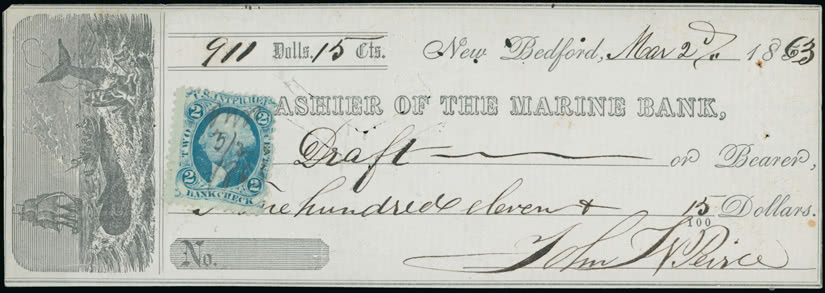 911 Dolls. 15 Cts. New Bedford, Mar 2d 1863
ASHIER OF THE MARINE BANK,
Draft or Bearer,
Nine hundred eleven & 15/100 Dollars.
No. John W Peirce
U.S. INT. REV.
2 2
TWO CENTS
2 2
BANK CHECK